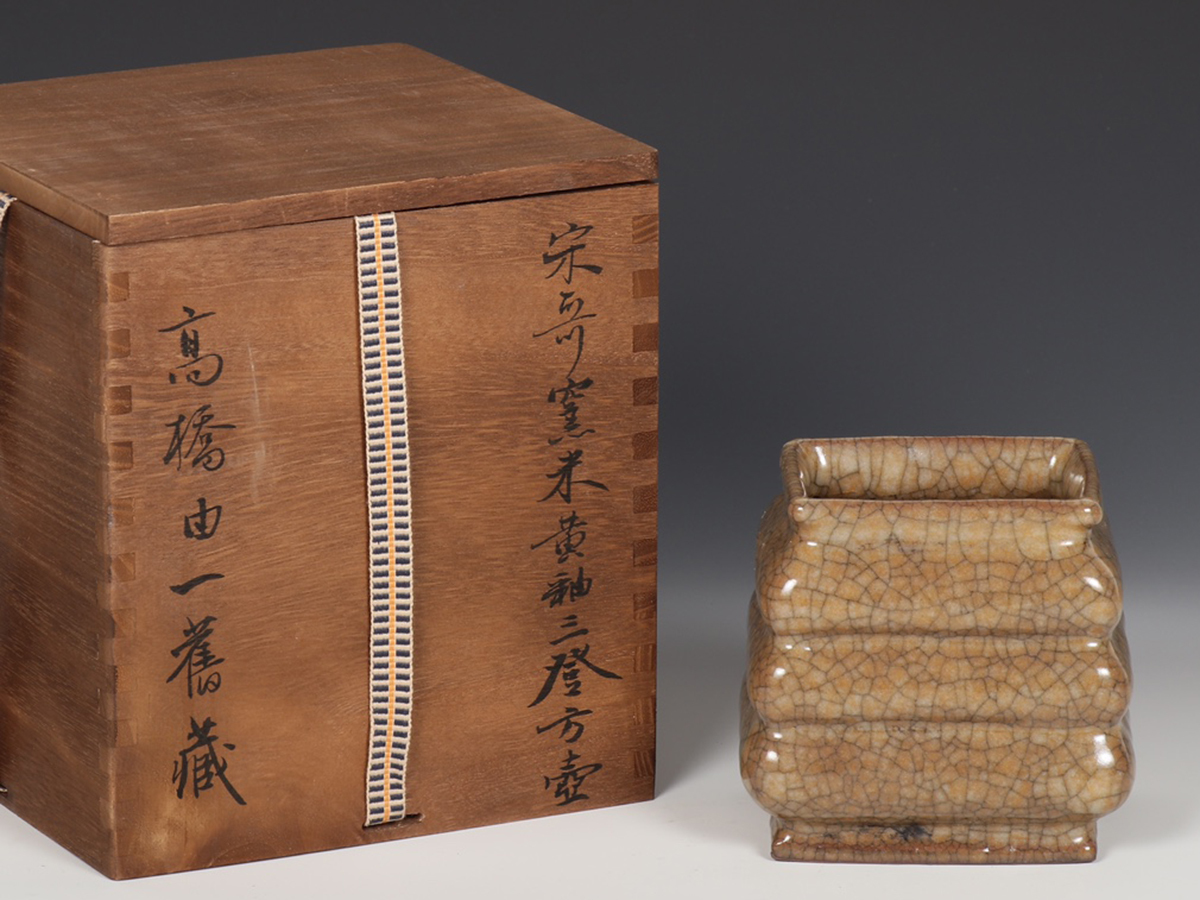 宋哥窯米黄釉三登方壺
高橋由一舊藏